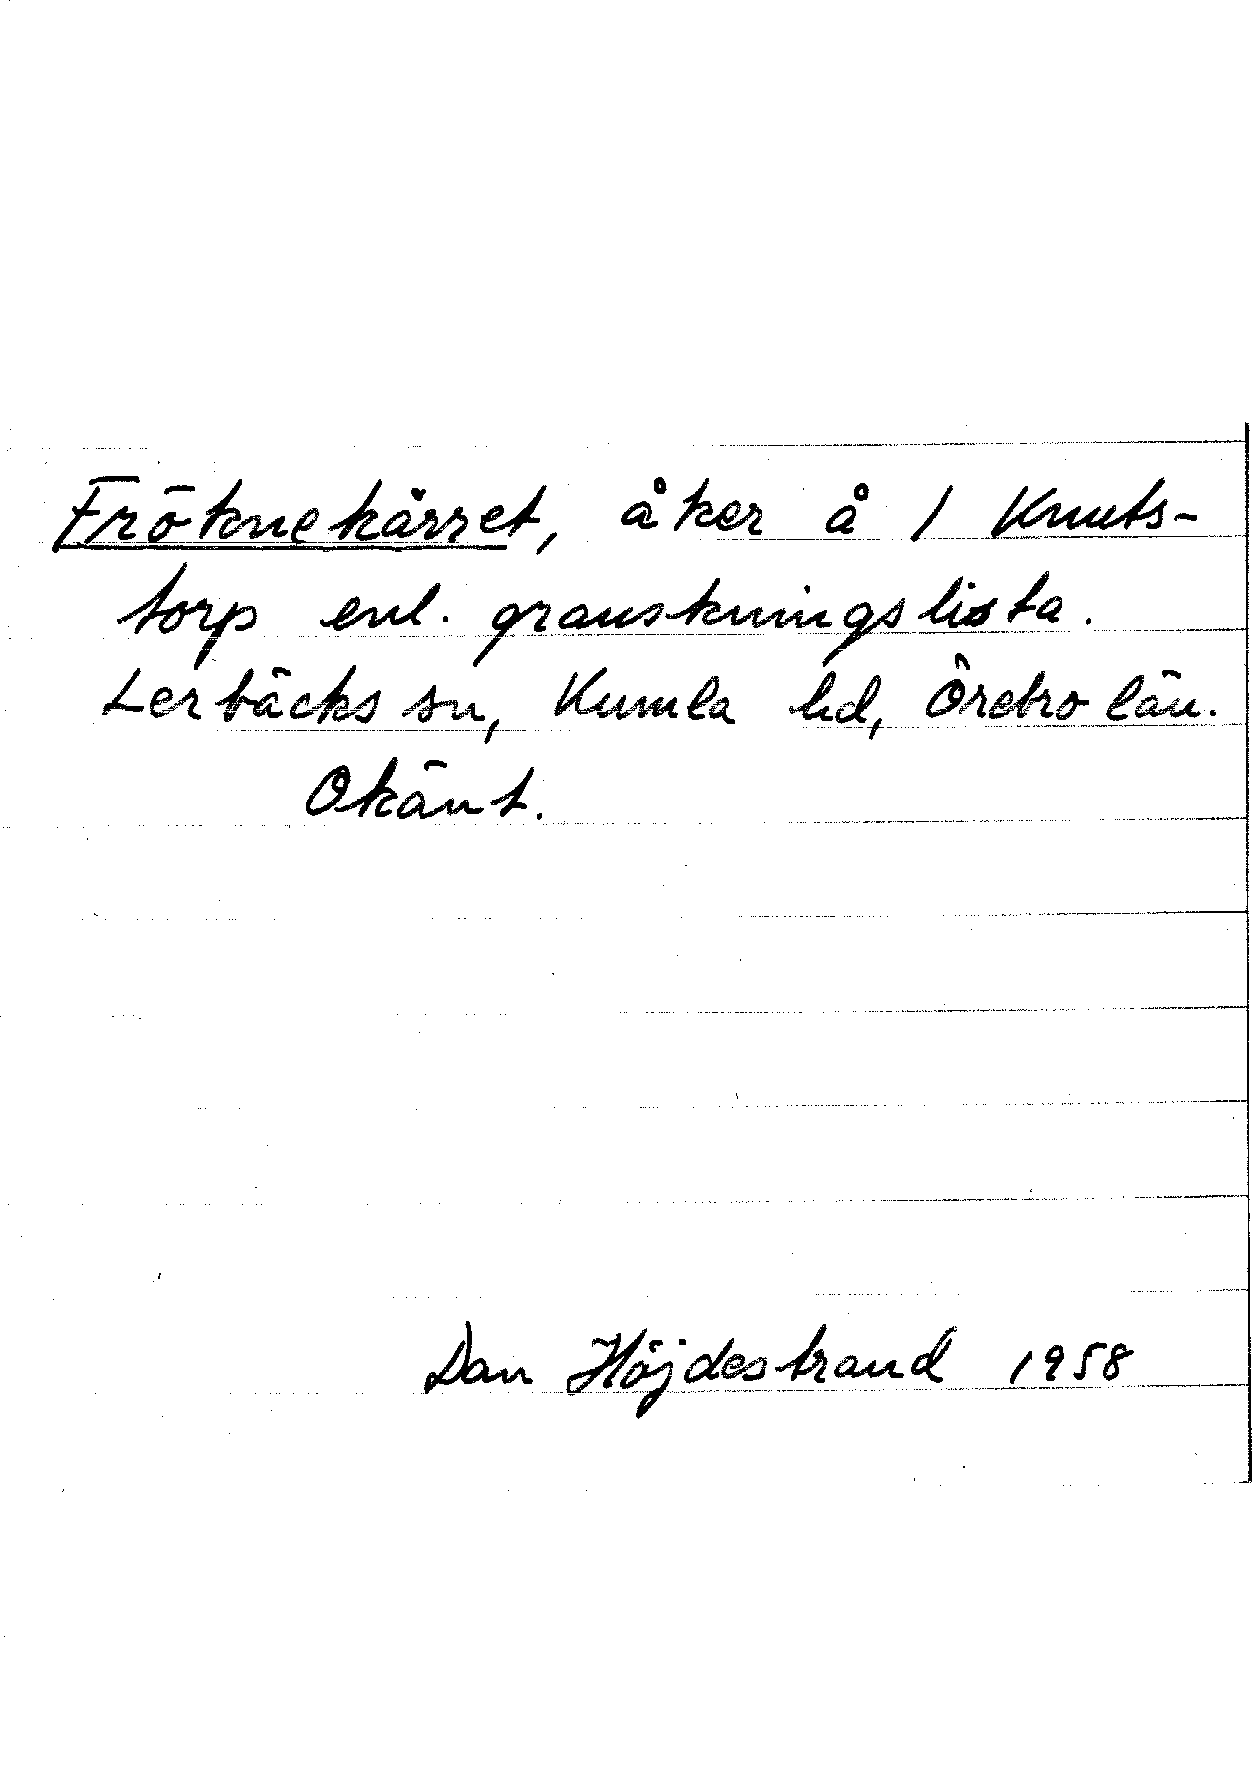 Fröknekärret, åker å 1 Knuts-
torp enl. granskningslista.
Lerbäcks sn, Kumla hd, Örebro län.
Okänt.
Dan Höjdestrand 1958